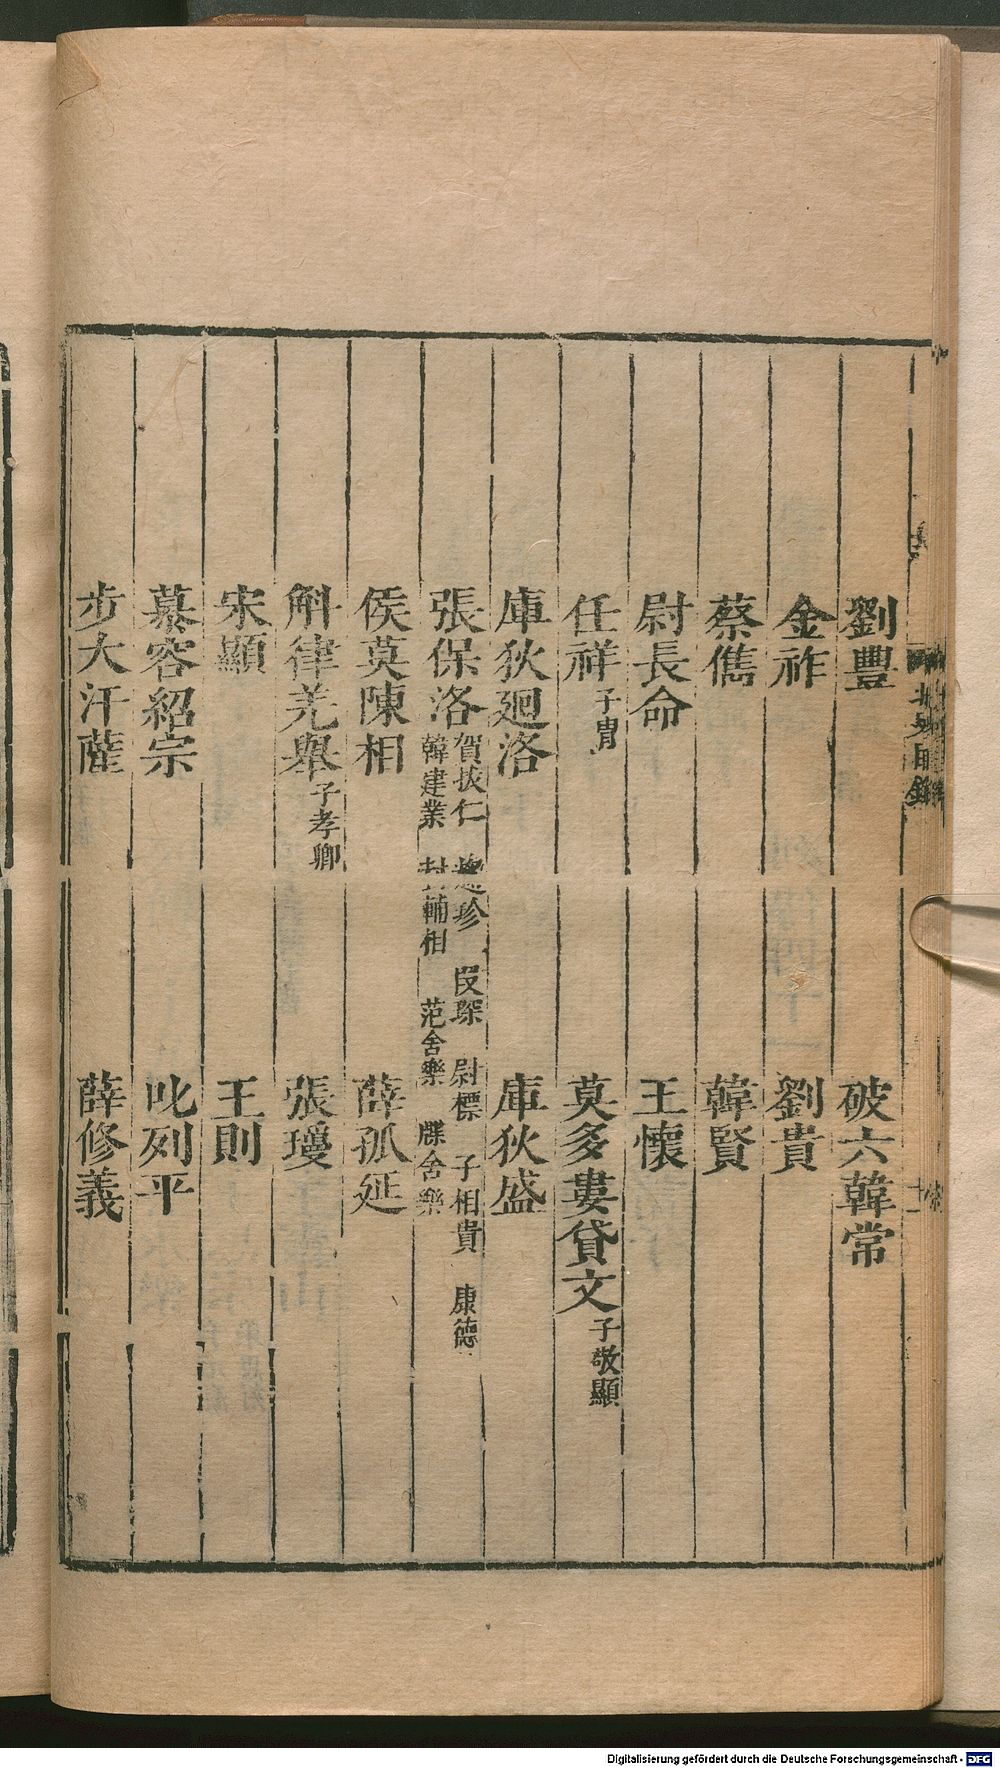 劉豐 破六韓常
金祚 劉貴
蔡儁 韓賢
尉長命 王懷
任祥 子胄 莫多婁貸文 子敬顯
庫狄廻洛 庫狄盛
張保洛 賀拔仁 珍 段琛 尉摽 子相貴 康德
韓建業 封輔相 范舍樂 牒舍樂
侯莫陳相 薛孤延
斛律羌舉 子孝卿 張瓊
宋顯 王則
慕容紹宗 叱列平
步大汗薩 薛修義
北史目錄
Digitalisierung gefördert durch die Deutsche Forschungsgemeinschaft - DFG